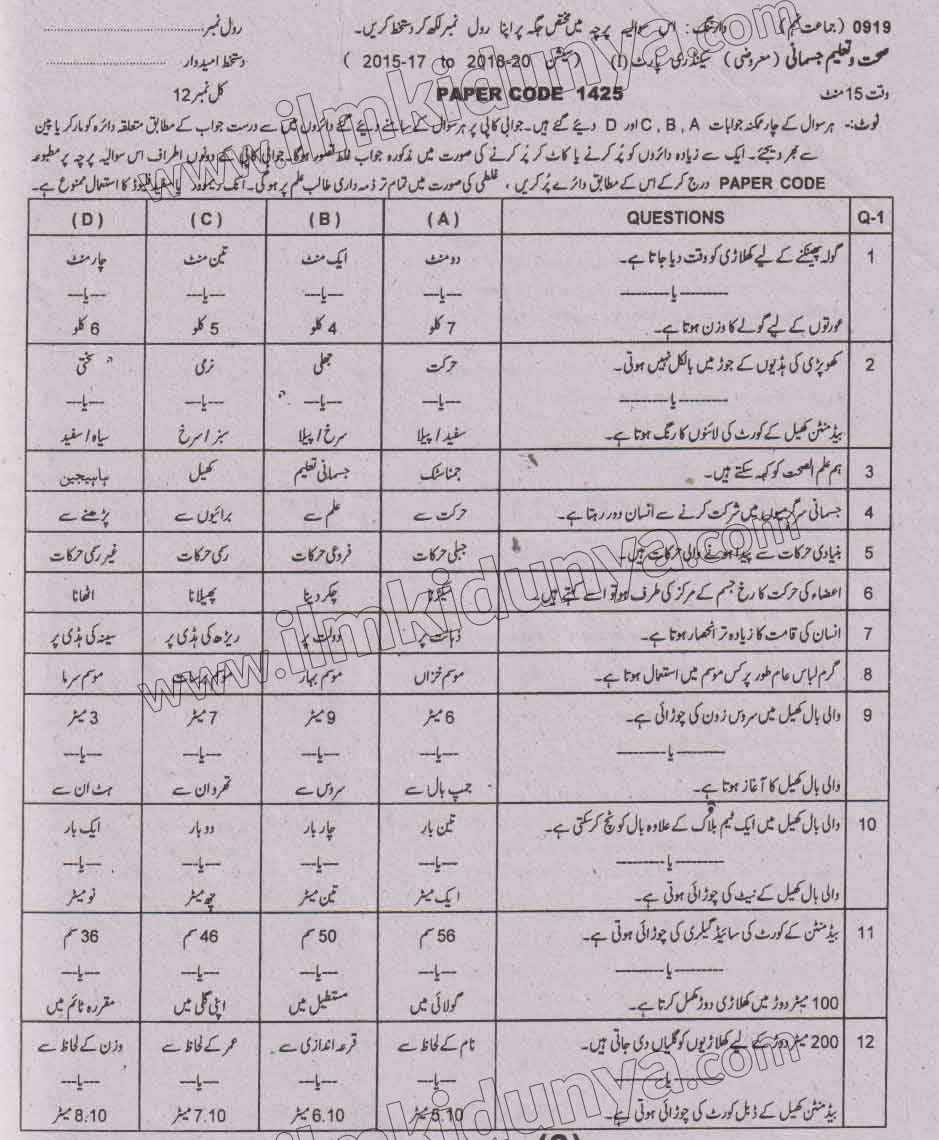 0919 (جماعت نہم) وارننگ: اس سوالیہ پرچہ میں مختص جگہ پر اپنا رول نمبر لکھ کر دستخط کریں۔ رول نمبر
صحت و تعلیم جسمانی (معروضی) سیکنڈری پارٹ (I) (سیشن 2015-17 to 2018-20) دستخط امیدوار
وقت 15 منٹ PAPER CODE 1425 کل نمبر 12
نوٹ:- ہر سوال کے چار ممکنہ جوابات A ، B ، C اور D دیئے گئے ہیں۔ جوابی کاپی پر ہر سوال کے سامنے دیئے گئے دائروں میں سے درست جواب کے مطابق متعلقہ دائرہ کو مارکر یا پین
سے بھر دیجئے۔ ایک سے زیادہ دائروں کو پُر کرنے یا کاٹ کر پُر کرنے کی صورت میں مذکورہ جواب غلط تصور ہوگا۔ جوابی کاپی کے دونوں اطراف اس سوالیہ پرچہ پر مطبوعہ
PAPER CODE درج کر کے اس کے مطابق دائرے پُر کریں ، غلطی کی صورت میں تمام تر ذمہ داری طالب علم پر ہوگی۔ انک ریموور یا سفید فلیوڈ کا استعمال ممنوع ہے۔
Q-1 QUESTIONS (A) (B) (C) (D)
1 گولہ پھینکنے کے لیے کھلاڑی کو وقت دیا جاتا ہے۔ دو منٹ ایک منٹ تین منٹ چار منٹ
---یا--- ---یا--- ---یا--- ---یا--- ---یا---
عورتوں کے لیے گولے کا وزن ہوتا ہے۔ 7 کلو 4 کلو 5 کلو 6 کلو
2 کھوپڑی کی ہڈیوں کے جوڑ میں بالکل نہیں ہوتی۔ حرکت جھلی نرمی سختی
---یا--- ---یا--- ---یا--- ---یا--- ---یا---
بیڈمنٹن کھیل کے کورٹ کی لائنوں کا رنگ ہوتا ہے۔ سفید/پیلا سرخ/پیلا سبز/سرخ سیاہ/سفید
3 ہم علم الصحت کو کہہ سکتے ہیں۔ جمناسٹک جسمانی تعلیم کھیل ہائیجین
4 جسمانی سرگرمیوں میں شرکت کرنے سے انسان دور رہتا ہے۔ حرکت سے علم سے برائیوں سے پڑھنے سے
5 بنیادی حرکات سے پیدا ہونے والی حرکات ہیں۔ جبلی حرکات فروعی حرکات رسمی حرکات غیر رسمی حرکات
6 اعضاء کی حرکت کا رخ جسم کے مرکز کی طرف ہو تو اسے کہتے ہیں۔ سکیڑنا چکر دینا پھیلانا اٹھانا
7 انسان کی قامت کا زیادہ تر انحصار ہوتا ہے۔ ذہانت پر دولت پر ریڑھ کی ہڈی پر سینہ کی ہڈی پر
8 گرم لباس عام طور پر کس موسم میں استعمال ہوتا ہے۔ موسم خزاں موسم بہار موسم برسات موسم سرما
9 والی بال کھیل میں سروس زون کی چوڑائی ہے۔ 6 میٹر 9 میٹر 7 میٹر 3 میٹر
---یا--- ---یا--- ---یا--- ---یا--- ---یا---
والی بال کھیل کا آغاز ہوتا ہے۔ جمپ بال سے سروس سے تھرو ان سے ہٹ ان سے
10 والی بال کھیل میں ایک ٹیم بلاک کے علاوہ بال کو ٹچ کر سکتی ہے۔ تین بار چار بار دو بار ایک بار
---یا--- ---یا--- ---یا--- ---یا--- ---یا---
والی بال کھیل کے نیٹ کی چوڑائی ہوتی ہے۔ ایک میٹر تین میٹر چھ میٹر نو میٹر
11 بیڈمنٹن کے کورٹ کی سائیڈ گیلری کی چوڑائی ہوتی ہے۔ 56 سم 50 سم 46 سم 36 سم
---یا--- ---یا--- ---یا--- ---یا--- ---یا---
100 میٹر دوڑ میں کھلاڑی دوڑ مکمل کرتا ہے۔ گولائی میں مستطیل میں اپنی گلی میں مقررہ ٹائم میں
12 200 میٹر دوڑ کے لیے کھلاڑیوں کو گلیاں دی جاتی ہیں۔ نام کے لحاظ سے قرعہ اندازی سے عمر کے لحاظ سے وزن کے لحاظ سے
---یا--- ---یا--- ---یا--- ---یا--- ---یا---
بیڈمنٹن کھیل کے ڈبل کورٹ کی چوڑائی ہوتی ہے۔ 5.10 میٹر 6.10 میٹر 7.10 میٹر 8.10 میٹر
www.ilmkidunya.com
www.ilmkidunya.com
www.ilmkidunya.com